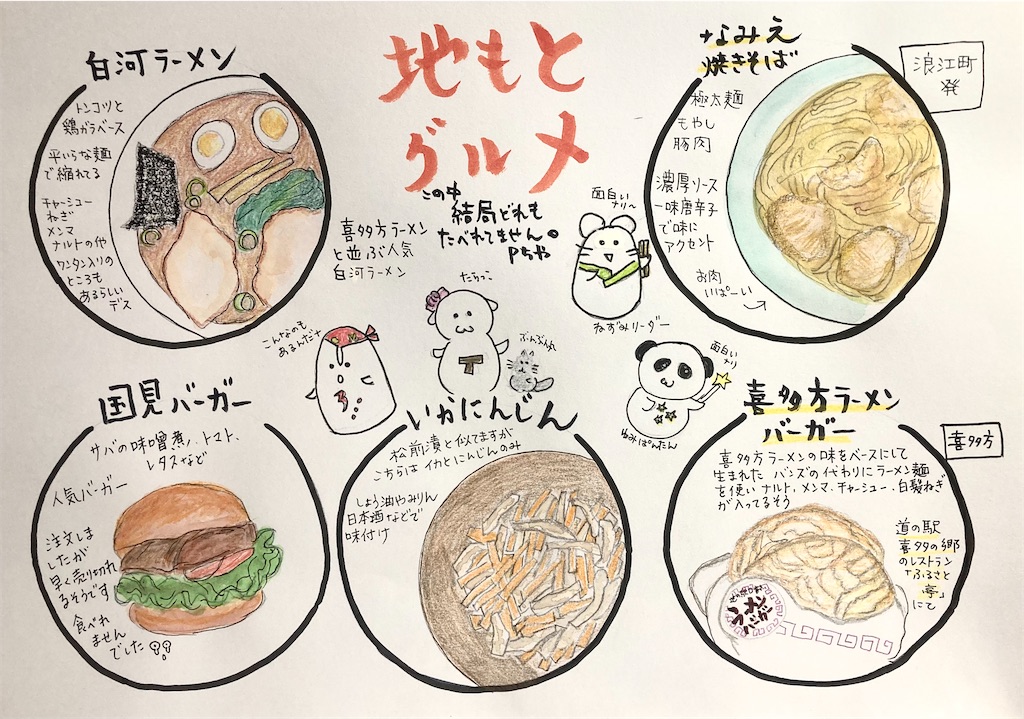 地もと
グルメ
この中
結局どれも
たべれてません。
Pちゃ
白河ラーメン
トンコツと
鶏ガラベース
平いらな麺
で縮れてる
チャーシュー
ねぎ
メンマ
ナルトの他
ワンタン入りの
ところも
あるらしい
デス
喜多方ラーメン
と並ぶ人気
白河ラーメン
なみえ
焼きそば
浪江町
発
極太麺
もやし
豚肉
濃厚ソース
一味唐辛子
で味に
アクセント
お肉
いぱーい
面白い
ナリ〜
ねずみリーダー
たらっこ
ぶんぶん丸
こんなのも
あるんだナ
面白い
ナリ
ねみぱんたん
国見バーガー
サバの味噌煮、トマト、
レタスなど
人気バーガー
注文しま
したが
早く売り切れ
るそうです
食べれ
ません
でした
いかにんじん
松前漬と似てますが
こちらは イカとにんじんのみ
しょう油やみりん
日本酒などで
味付け
喜多方ラーメン
バーガー
喜多方
喜多方ラーメンの味をベースにして
生まれた バンズの代わりにラーメン麺
を使い ナルト、メンマ、チャーシュー、白髪ねぎ
が入ってるそう
道の駅
喜多の郷
のレストラン
「ふるさと
亭」
にて
ラーメン
バーガー